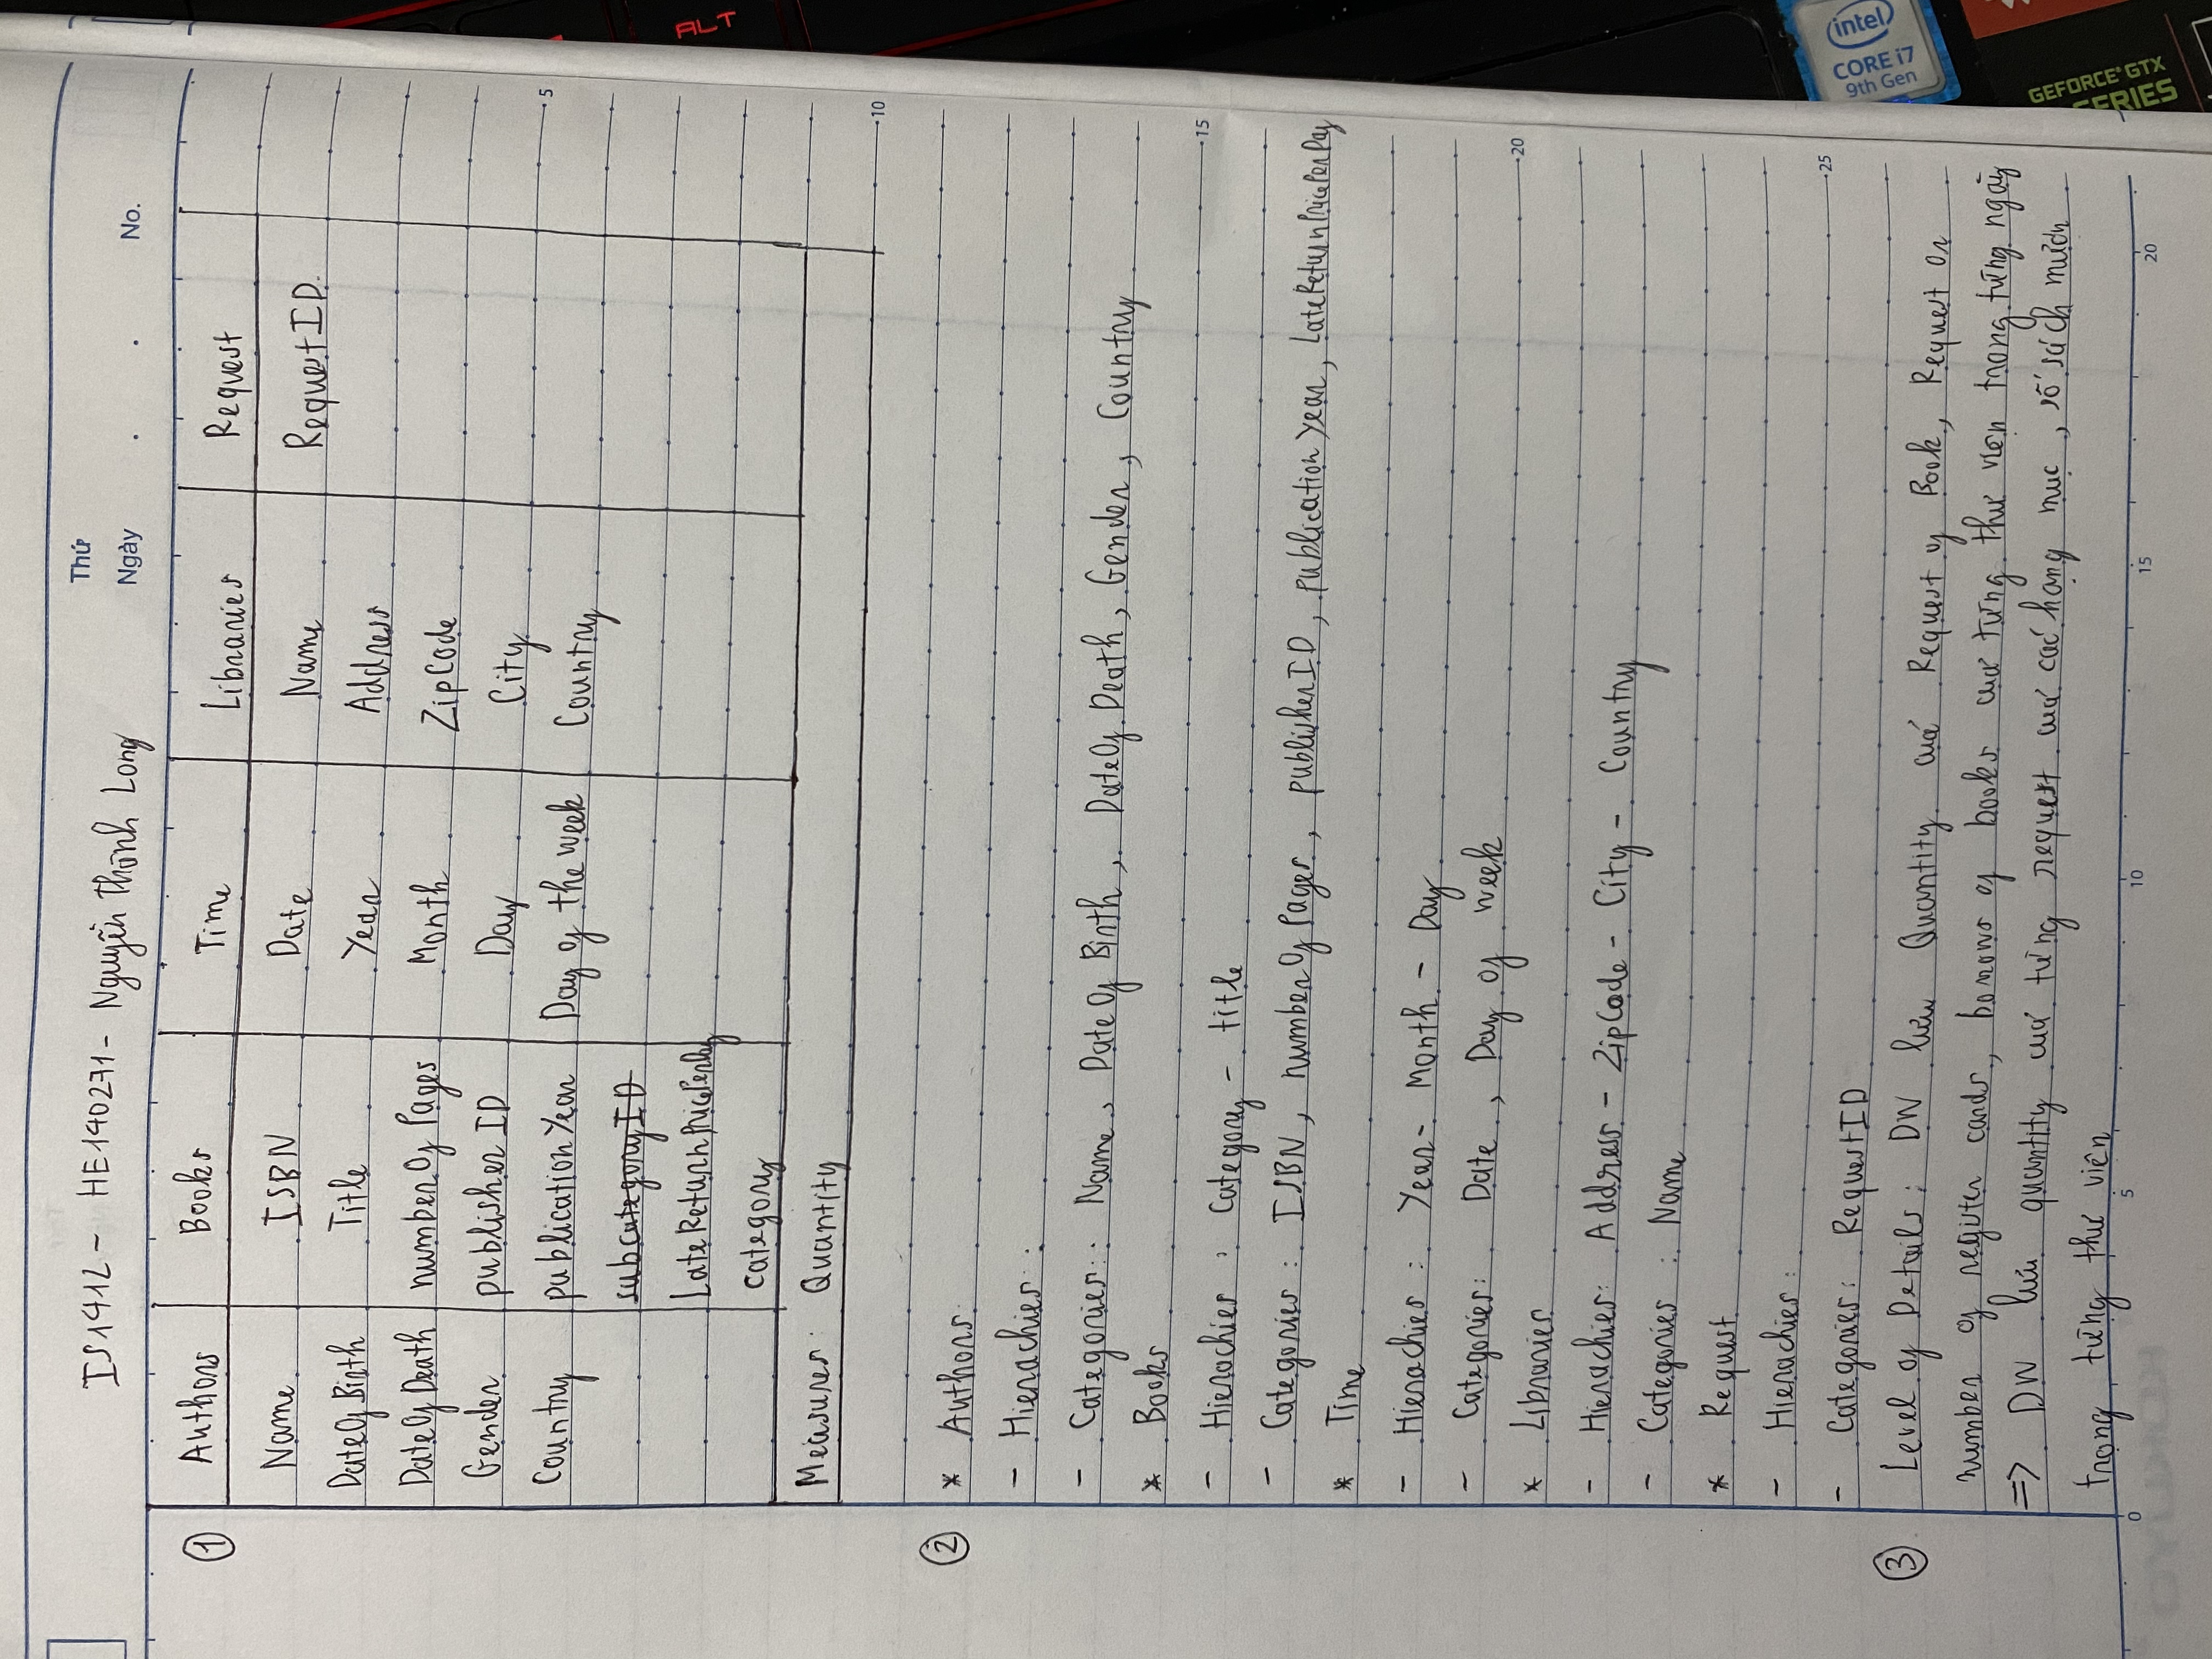 Thứ
IS1412 - HE140271 - Nguyễn Thành Long
Ngày . . No.
① Authors Books Time Libraries Request
Name ISBN Date Name RequestID
DateOfBirth Title Year Address
DateOfDeath numberOfPages Month ZipCode
Gender publisherID Day City
Country publicationYear Day of the week Country
5
subcategoryID
LateReturnPricePerDay
category
Measures: Quantity
10
② * Authors
- Hierachies :
- Categories : Name, DateOfBirth, DateOfDeath, Gender, Country
* Books
15
- Hierachies : Category - title
- Categories : ISBN, numberOfPages, publisherID, publicationYear, LateReturnPricePerDay
* Time
- Hierachies : Year - Month - Day
- Categories: Date, Day of week
20
* Libraries
- Hierachies: Address - ZipCode - City - Country
- Categories : Name
* Request
- Hierachies :
25
- Categories : RequestID
③ Level of Details: DW lưu Quantity cuả Request of Book, Request or
number of register cards, borrows of books cuả từng thư viện trong từng ngày
=> DW lưu quantity cuả từng request cuả các hạng mục, số sách mượn
trong từng thư viện
0 5 10 15 20
KOKUYO
ALT
intel
CORE i7
9th Gen
GEFORCE GTX
SERIES